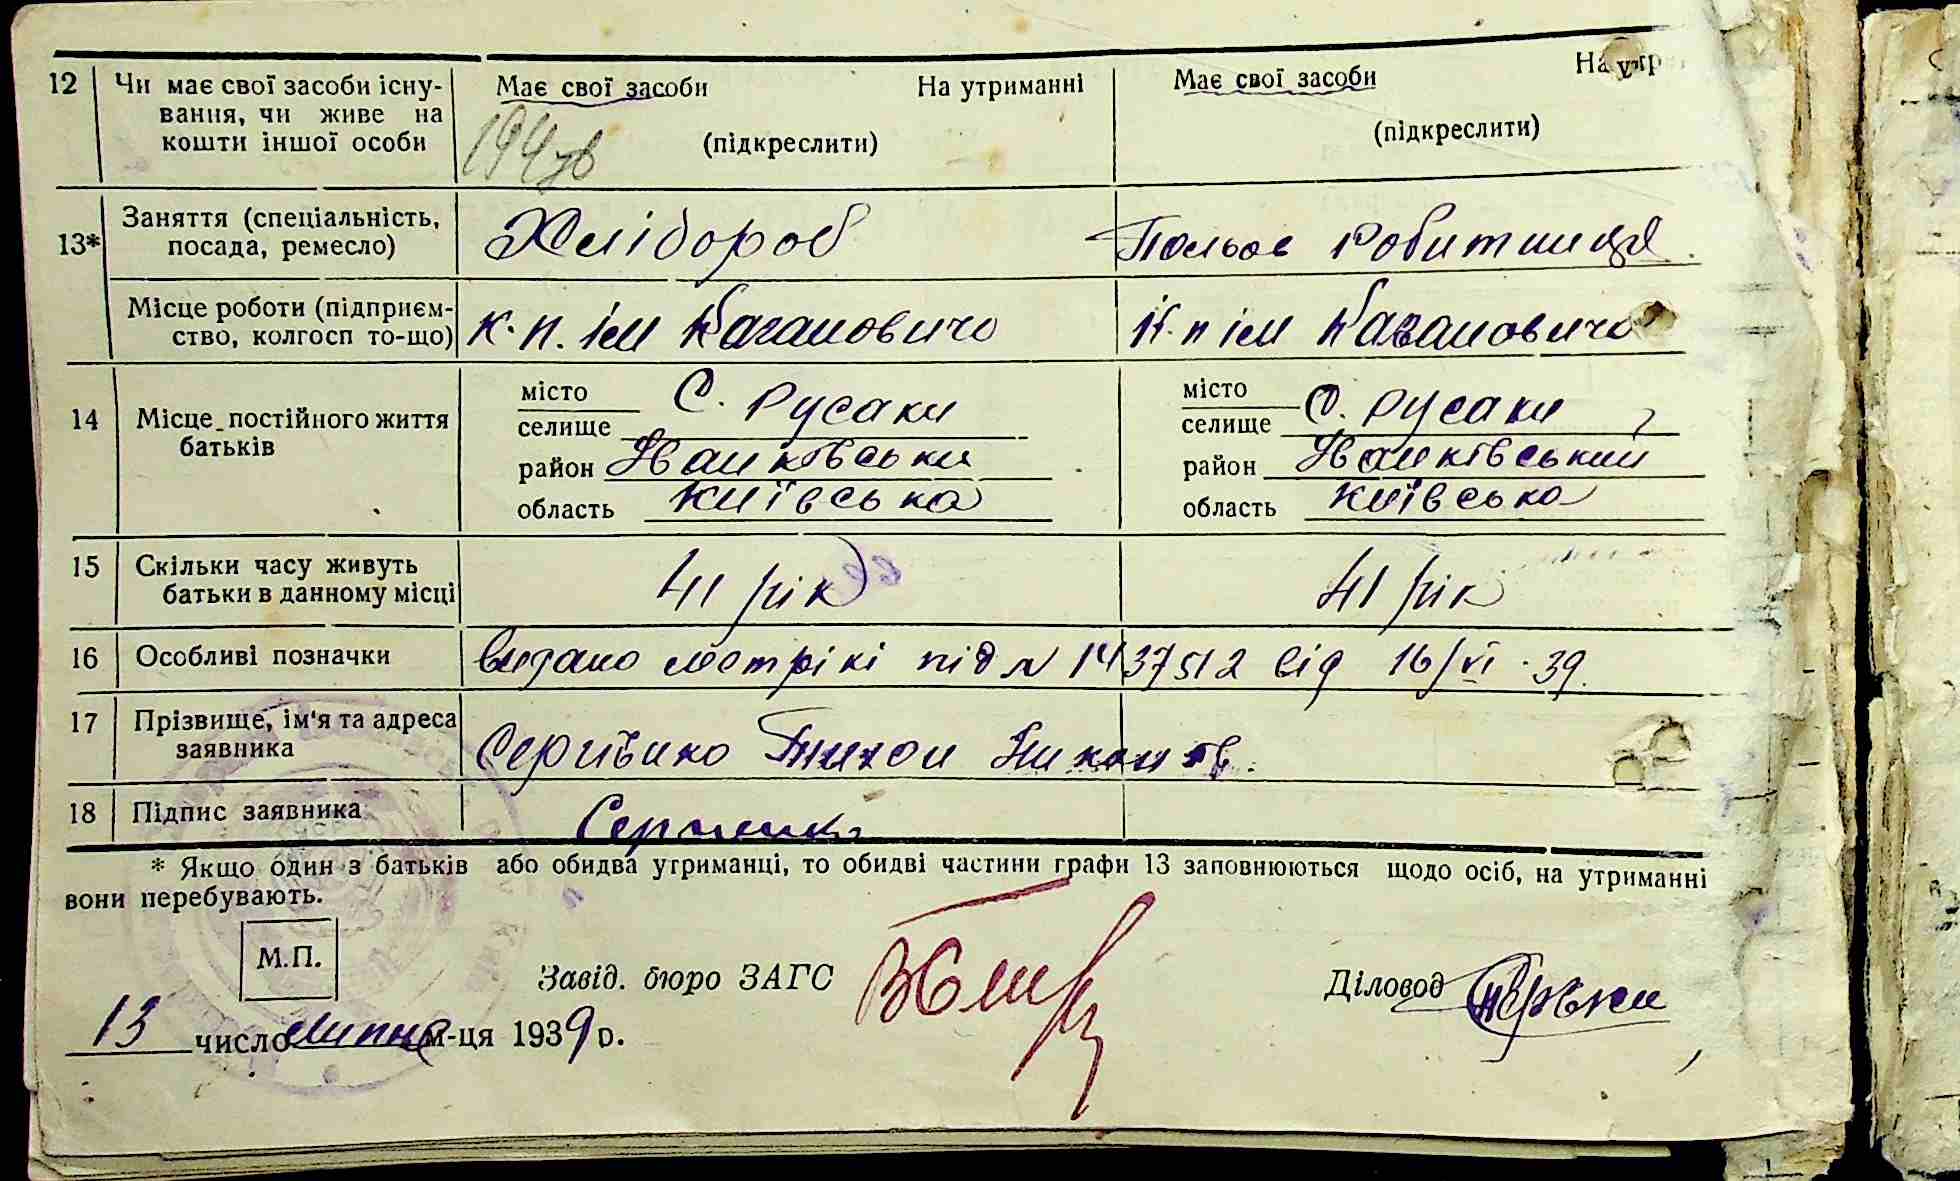 12 Чи має свої засоби існу- Має свої засоби На утриманні Має свої засоби На утри
вання, чи живе на
кошти іншої особи (підкреслити) (підкреслити)
13* Заняття (спеціальність, Хлібороб Польов робитниця
посада, ремесло)
Місце роботи (підприєм- к.п. ім Кагановича К.п ім Кагановича
ство, колгосп то-що)
14 Місце постійного життя місто С. Русаки місто С. Русаки
батьків селище селище
район Іванківськи район Іванківський
область Київська область Київська
15 Скільки часу живуть 41 рік 41 рік
батьки в данному місці
16 Особливі позначки Видано метрікі під N 1437512 від 16/VI. 39.
17 Прізвище, ім'я та адреса Сергієнко Тихон
заявника
18 Підпис заявника Сергиенко
* Якщо один з батьків або обидва утриманці, то обидві частини графи 13 заповнюються щодо осіб, на утриманні
вони перебувають.
М.П.
Завід. бюро ЗАГС Діловод
13 число липня м-ця 1939 р.